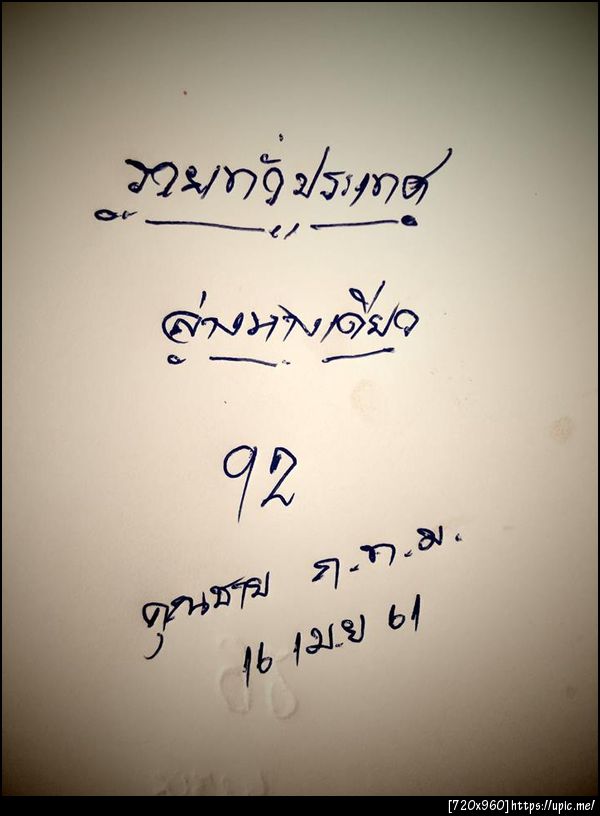 รวยทั่วประเทศ
ล่างทางเดียว
92
คุณชาย ก.ท.ม.
16 เม.ย 61
[720x960]https://upic.me/